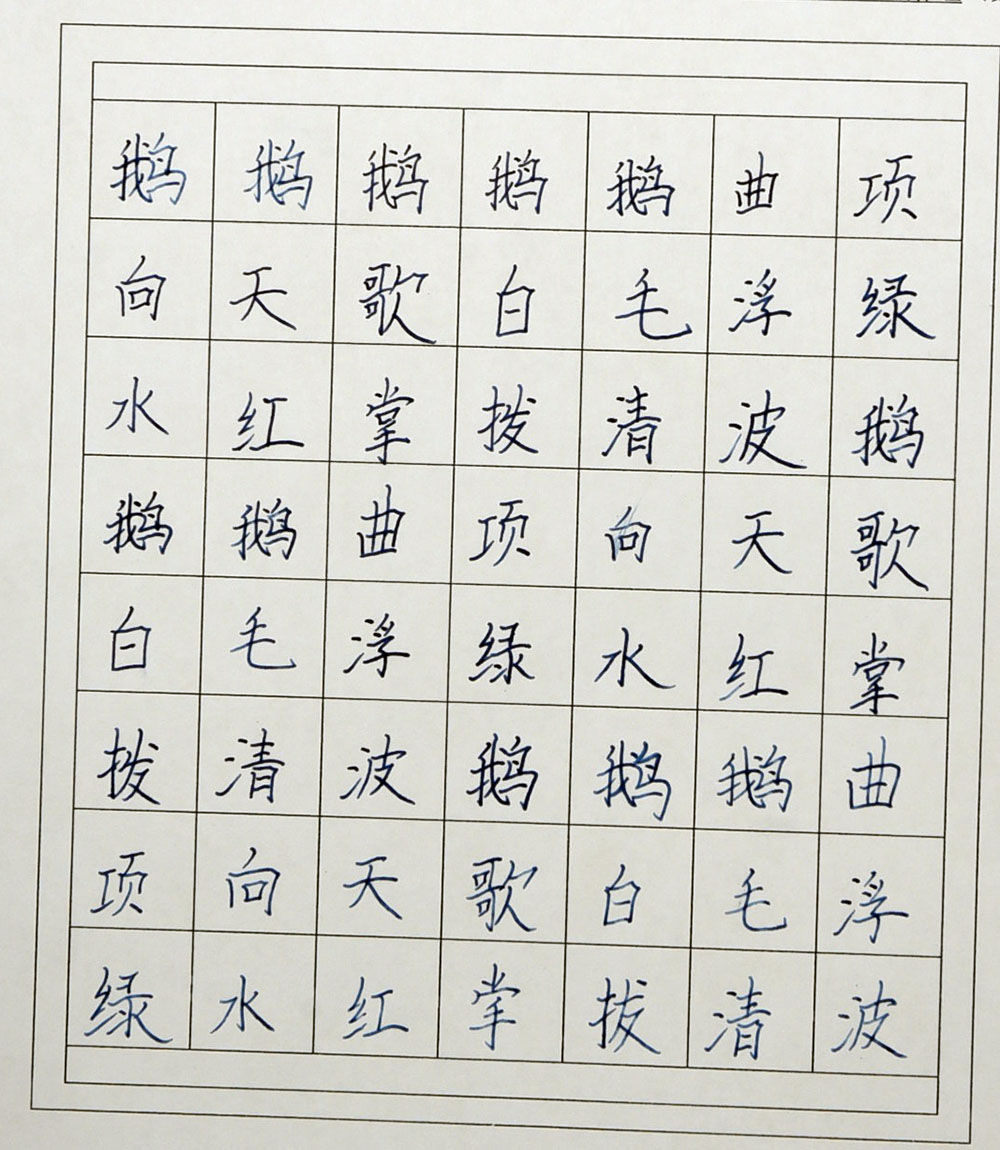 鹅鹅鹅鹅鹅曲项
向天歌白毛浮绿
水红掌拨清波鹅
鹅鹅曲项向天歌
白毛浮绿水红掌
拨清波鹅鹅鹅曲
项向天歌白毛浮
绿水红掌拔清波